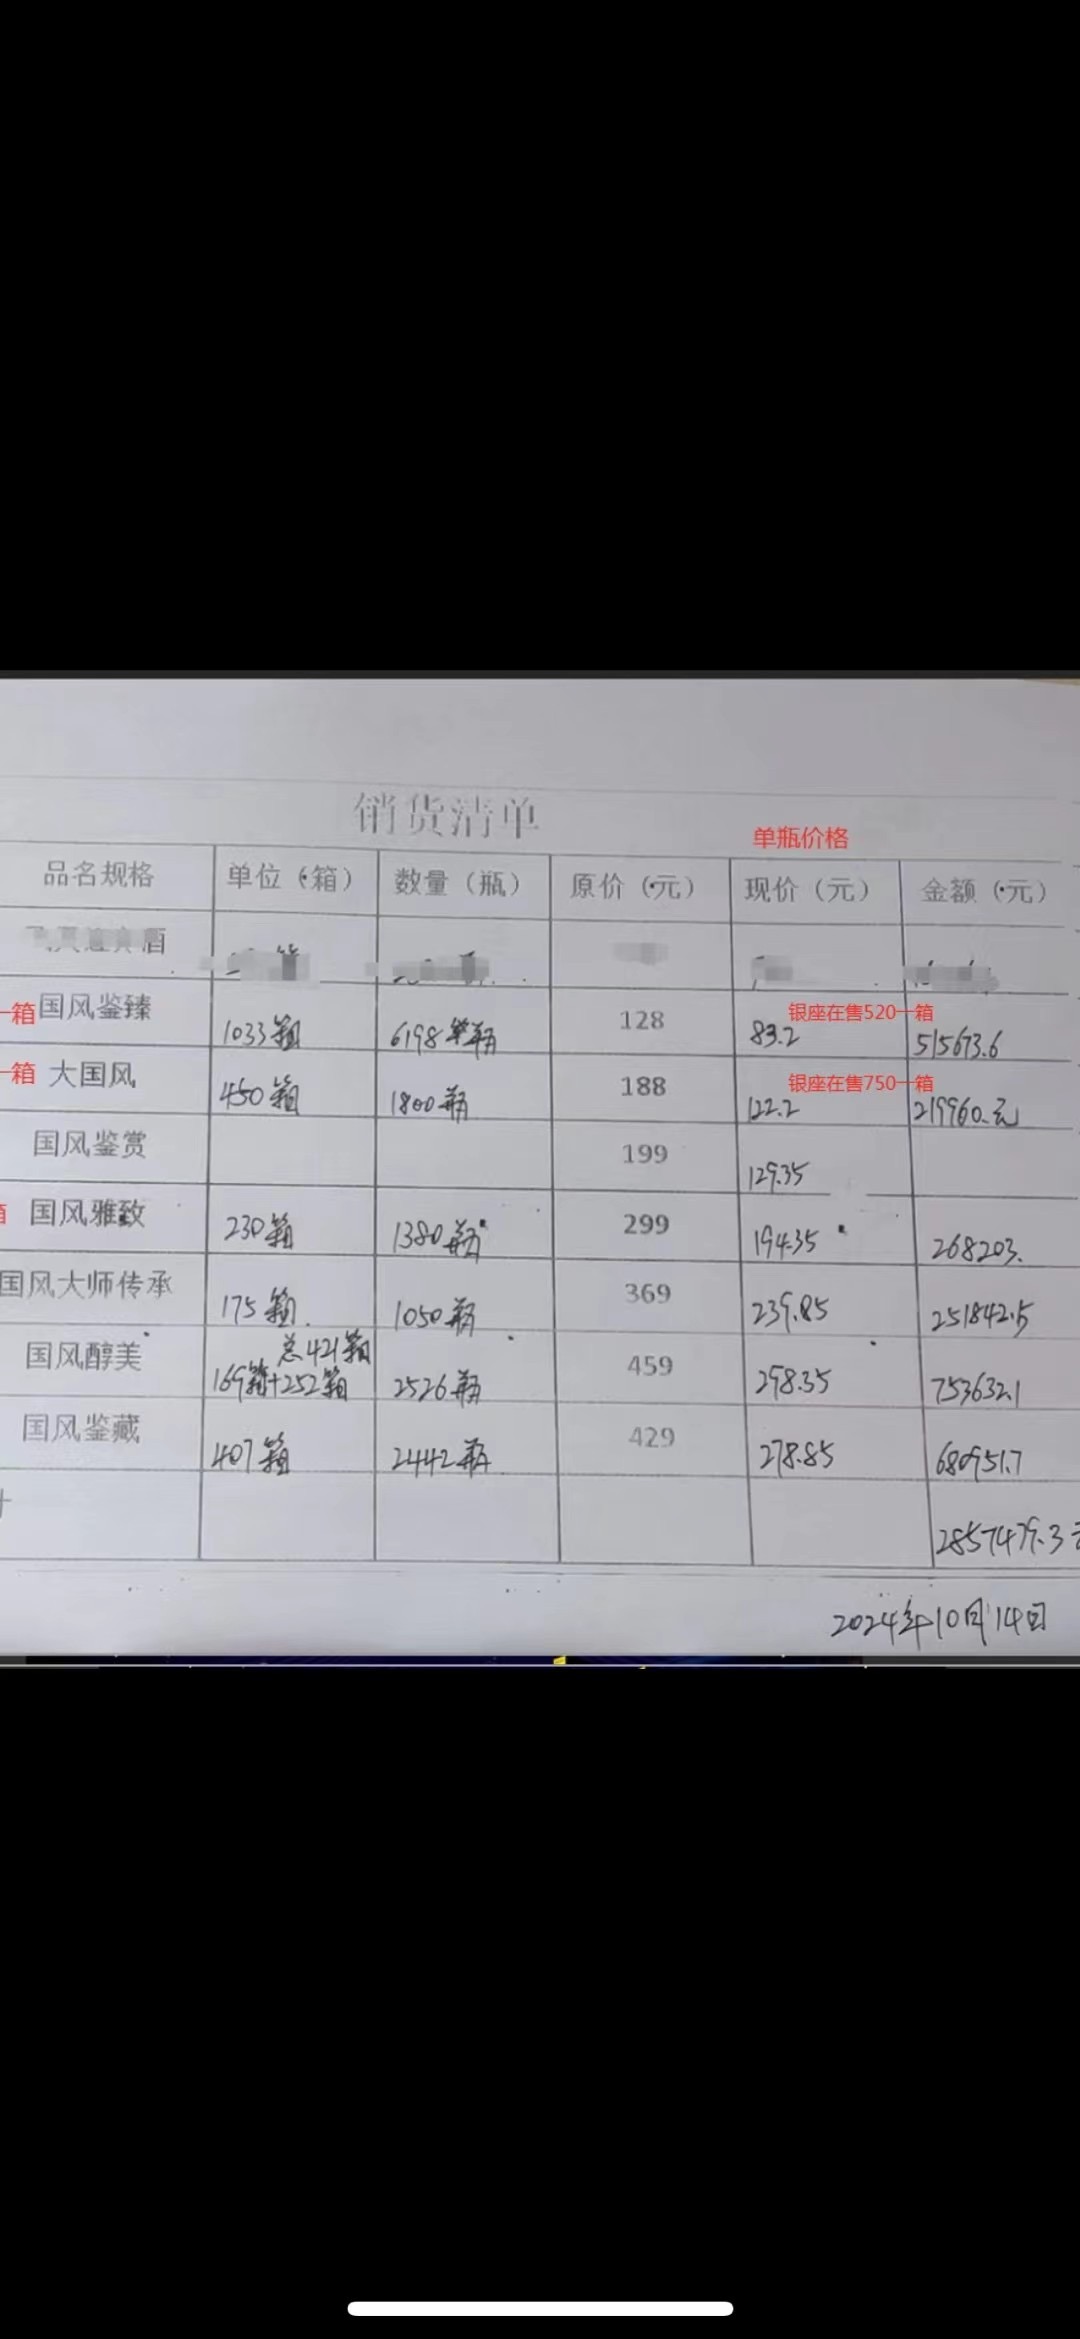 销货清单
单瓶价格
品名规格 单位（箱） 数量（瓶） 原价（元） 现价（元） 金额（元）
酒
一箱 国风鉴臻 1033箱 6198 瓶 128 83.2 银座在售520一箱 515673.6
一箱 大国风 450箱 1800瓶 188 122.2 银座在售750一箱 219960.元
国风鉴赏 199 129.35
箱 国风雅致 230箱 1380瓶 299 194.35 268203.
国风大师传承 175箱. 1050瓶 369 239.85 251842.5
国风醇美 总421箱 169箱+252箱 2526瓶 459 298.35 753632.1
国风鉴藏 407箱 2442瓶 429 278.85 680951.7
2857479.3
2024年10月14日